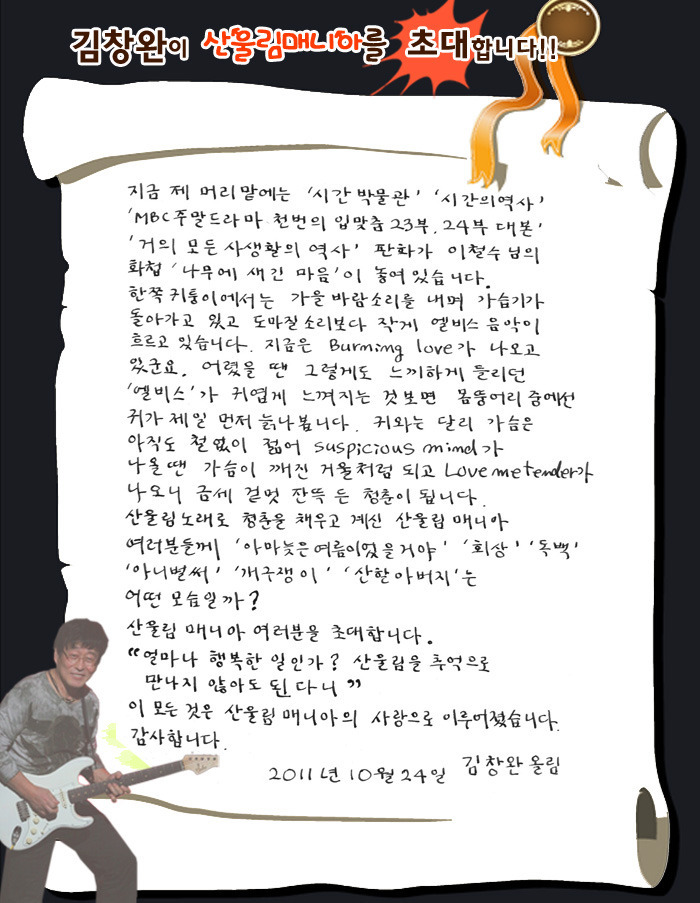 김창완이 산울림매니아를 초대합니다!!
지금 제 머리맡에는 '시간 박물관' '시간의역사'
'MBC 주말드라마 천번의 입맞춤 23부, 24부 대본'
'거의 모든 사생활의 역사' 판화가 이철수 님의
화첩 '나무에 새긴 마음'이 놓여 있습니다.
한쪽 귀퉁이에서는 가을 바람소리를 내며 가습기가
돌아가고 있고 도마질 소리보다 작게 엘비스 음악이
흐르고 있습니다. 지금은 Burning love가 나오고
있군요. 어렸을 땐 그렇게도 느끼하게 들리던
'엘비스'가 귀엽게 느껴지는 것 보면 몸뚱어리 중에선
귀가 제일 먼저 늙나봅니다. 귀와는 달리 가슴은
아직도 철없이 젊어 suspicious mind가
나올 땐 가슴이 깨진 거울처럼 되고 Love me tender가
나오니 금세 겉멋 잔뜩 든 청춘이 됩니다.
산울림노래로 청춘을 채우고 계신 산울림 매니아
여러분들께 '아마늦은여름이었을거야' '회상' '독백'
'아니벌써' '개구쟁이' '산할아버지'는
어떤 모습일까?
산울림 매니아 여러분을 초대합니다.
"얼마나 행복한 일인가? 산울림을 추억으로
만나지 않아도 된다니"
이 모든 것은 산울림매니아의 사랑으로 이루어졌습니다.
감사합니다.
2011년 10월 24일 김창완 올림